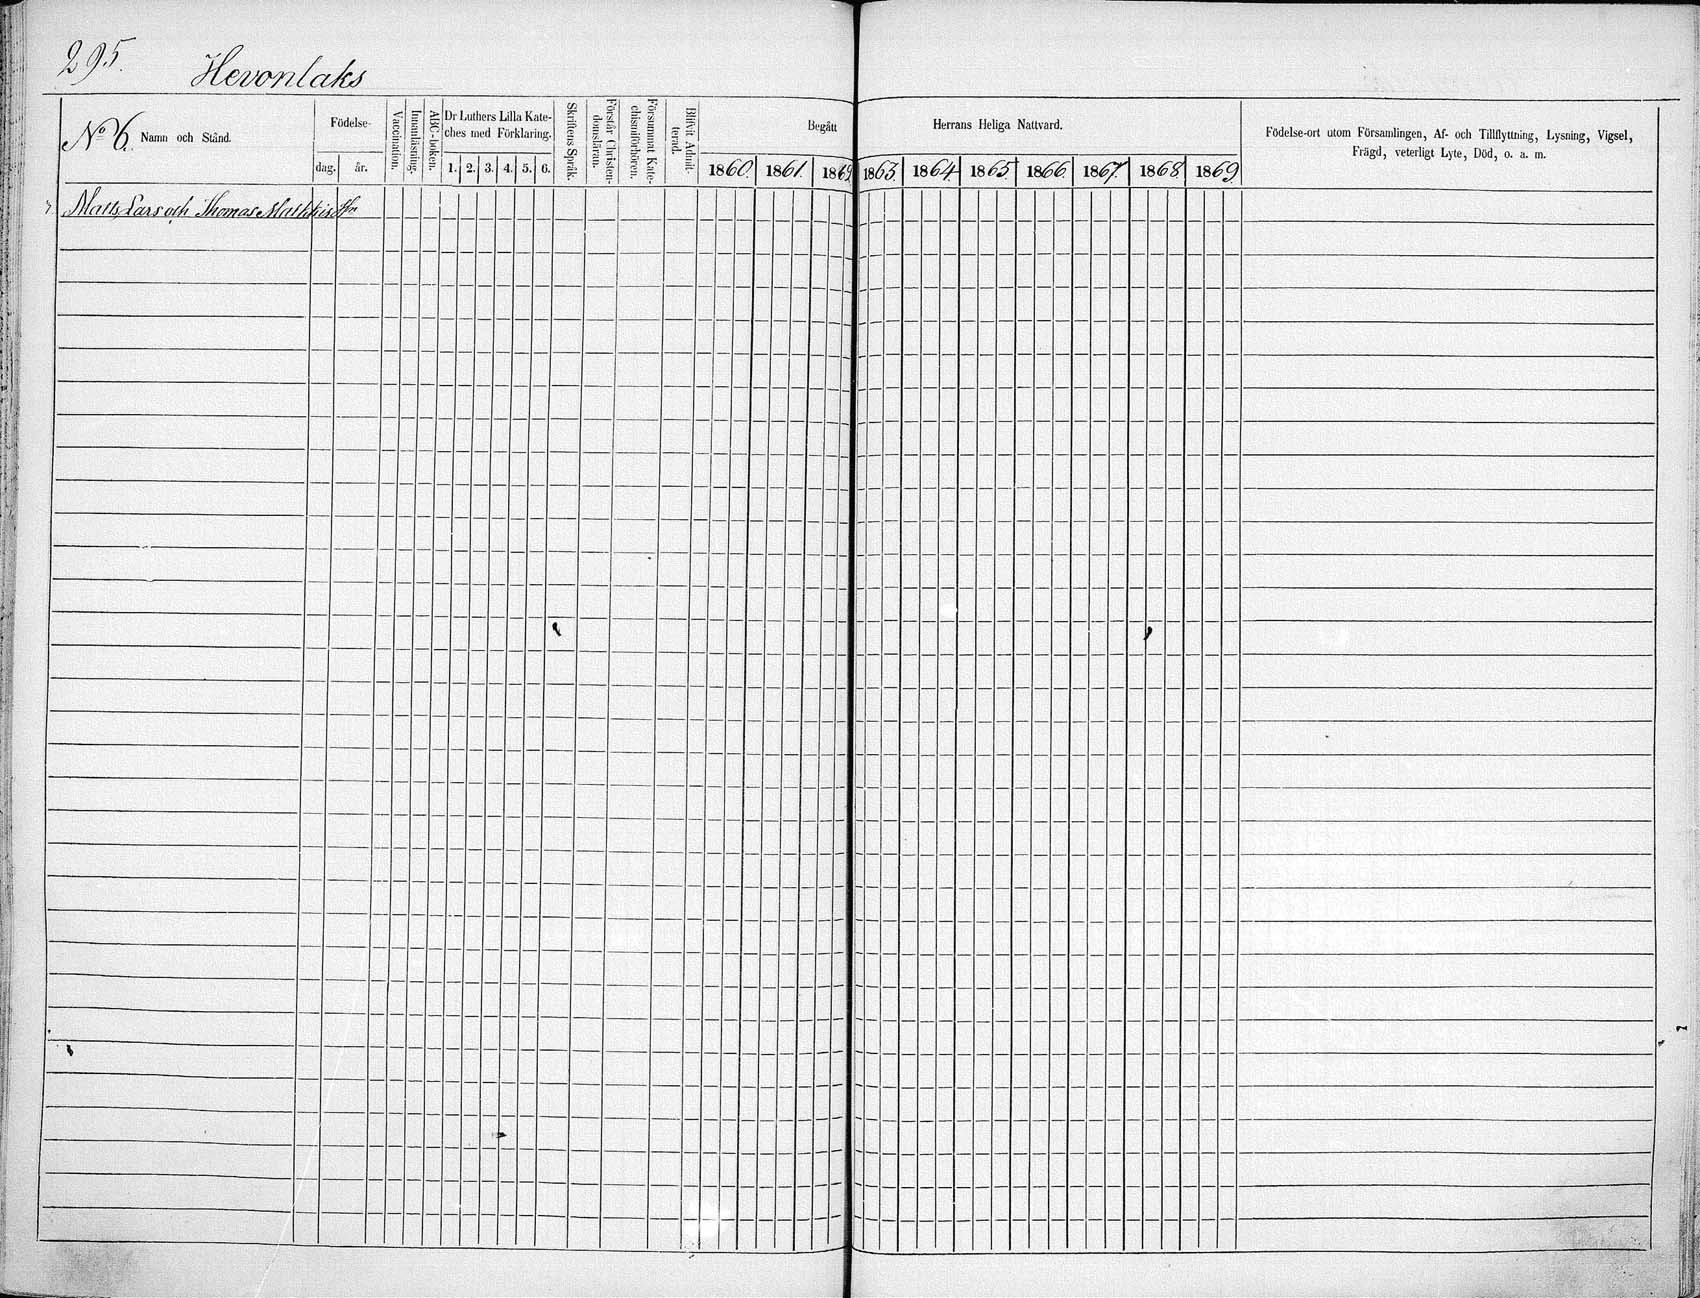 295.
Hevonlaks
No 6. Namn och Stånd.
Födelse-
dag. år.
Vaccination.
Innanläsning.
ABC-boken.
Dr Luthers Lilla Kate-
ches med Förklaring.
1. 2. 3. 4. 5. 6.
Skriftens Språk.
Förstår Christen-
domsläran.
Försummat Kate-
chismiförhören.
Blifvit Admit-
terad.
Begått Herrans Heliga Nattvard.
1860. 1861. 1862 1863 1864 1865 1866 1867. 1868 1869.
Födelse-ort utom Församlingen, Af- och Tillflyttning, Lysning, Vigsel,
Frägd, veterligt Lyte, Död, o. a. m.
Matts, Lars och Thomas